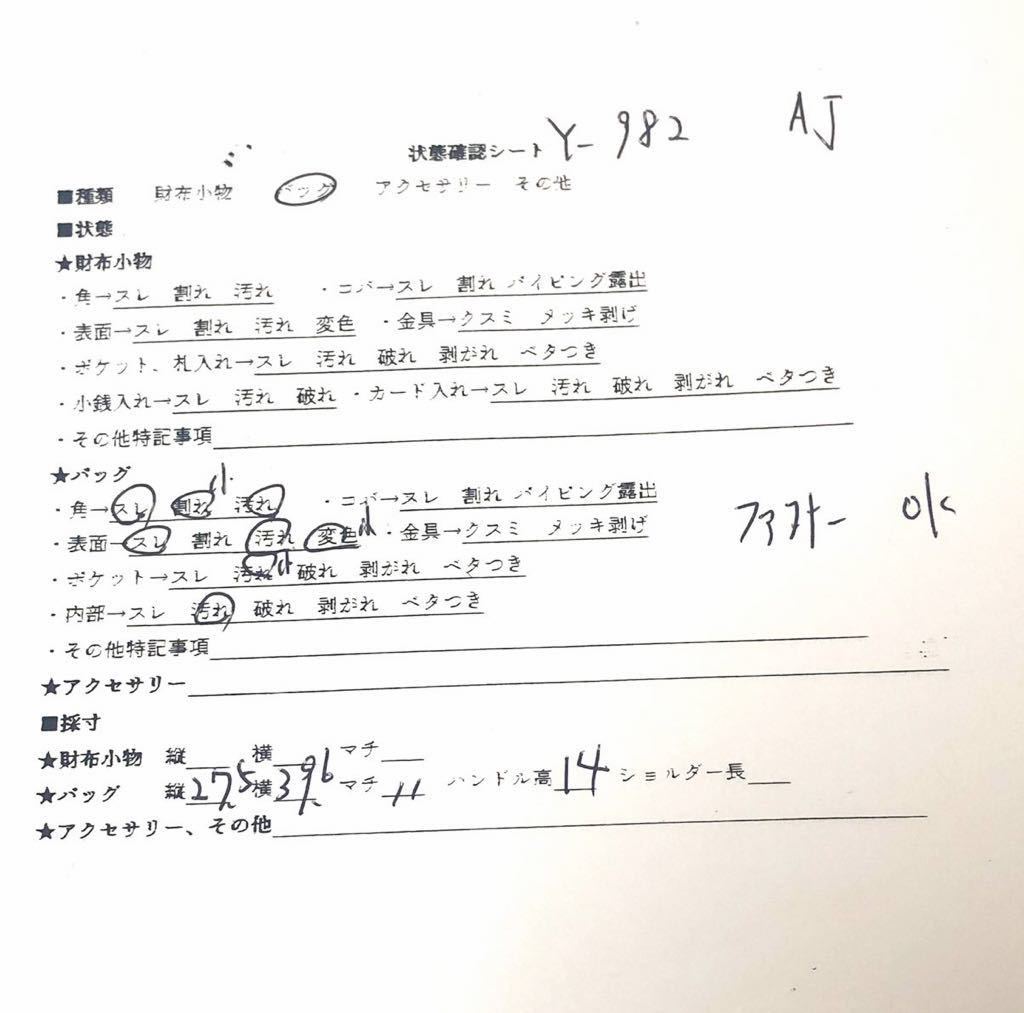 状態確認シート Y-982 AJ
■種類 財布小物 バッグ アクセサリー その他
■状態
★財布小物
・角→スレ 割れ 汚れ ・コバ→スレ 割れ パイピング露出
・表面→スレ 割れ 汚れ 変色 ・金具→クスミ メッキ剥げ
・ポケット、札入れ→スレ 汚れ 破れ 剥がれ ベタつき
・小銭入れ→スレ 汚れ 破れ ・カード入れ→スレ 汚れ 破れ 剥がれ ベタつき
・その他特記事項
★バッグ
・角→スレ 割れ小 汚れ ・コバ→スレ 割れ パイピング露出
・表面→スレ 割れ 汚れ 変色小 ・金具→クスミ メッキ剥げ
ファスナー OK
・ポケット→スレ 汚れ小 破れ 剥がれ ベタつき
・内部→スレ 汚れ 破れ 剥がれ ベタつき
・その他特記事項
★アクセサリー
■採寸
★財布小物 縦 横 マチ
★バッグ 縦27.5 横39.6 マチ11 ハンドル高14 ショルダー長
★アクセサリー、その他